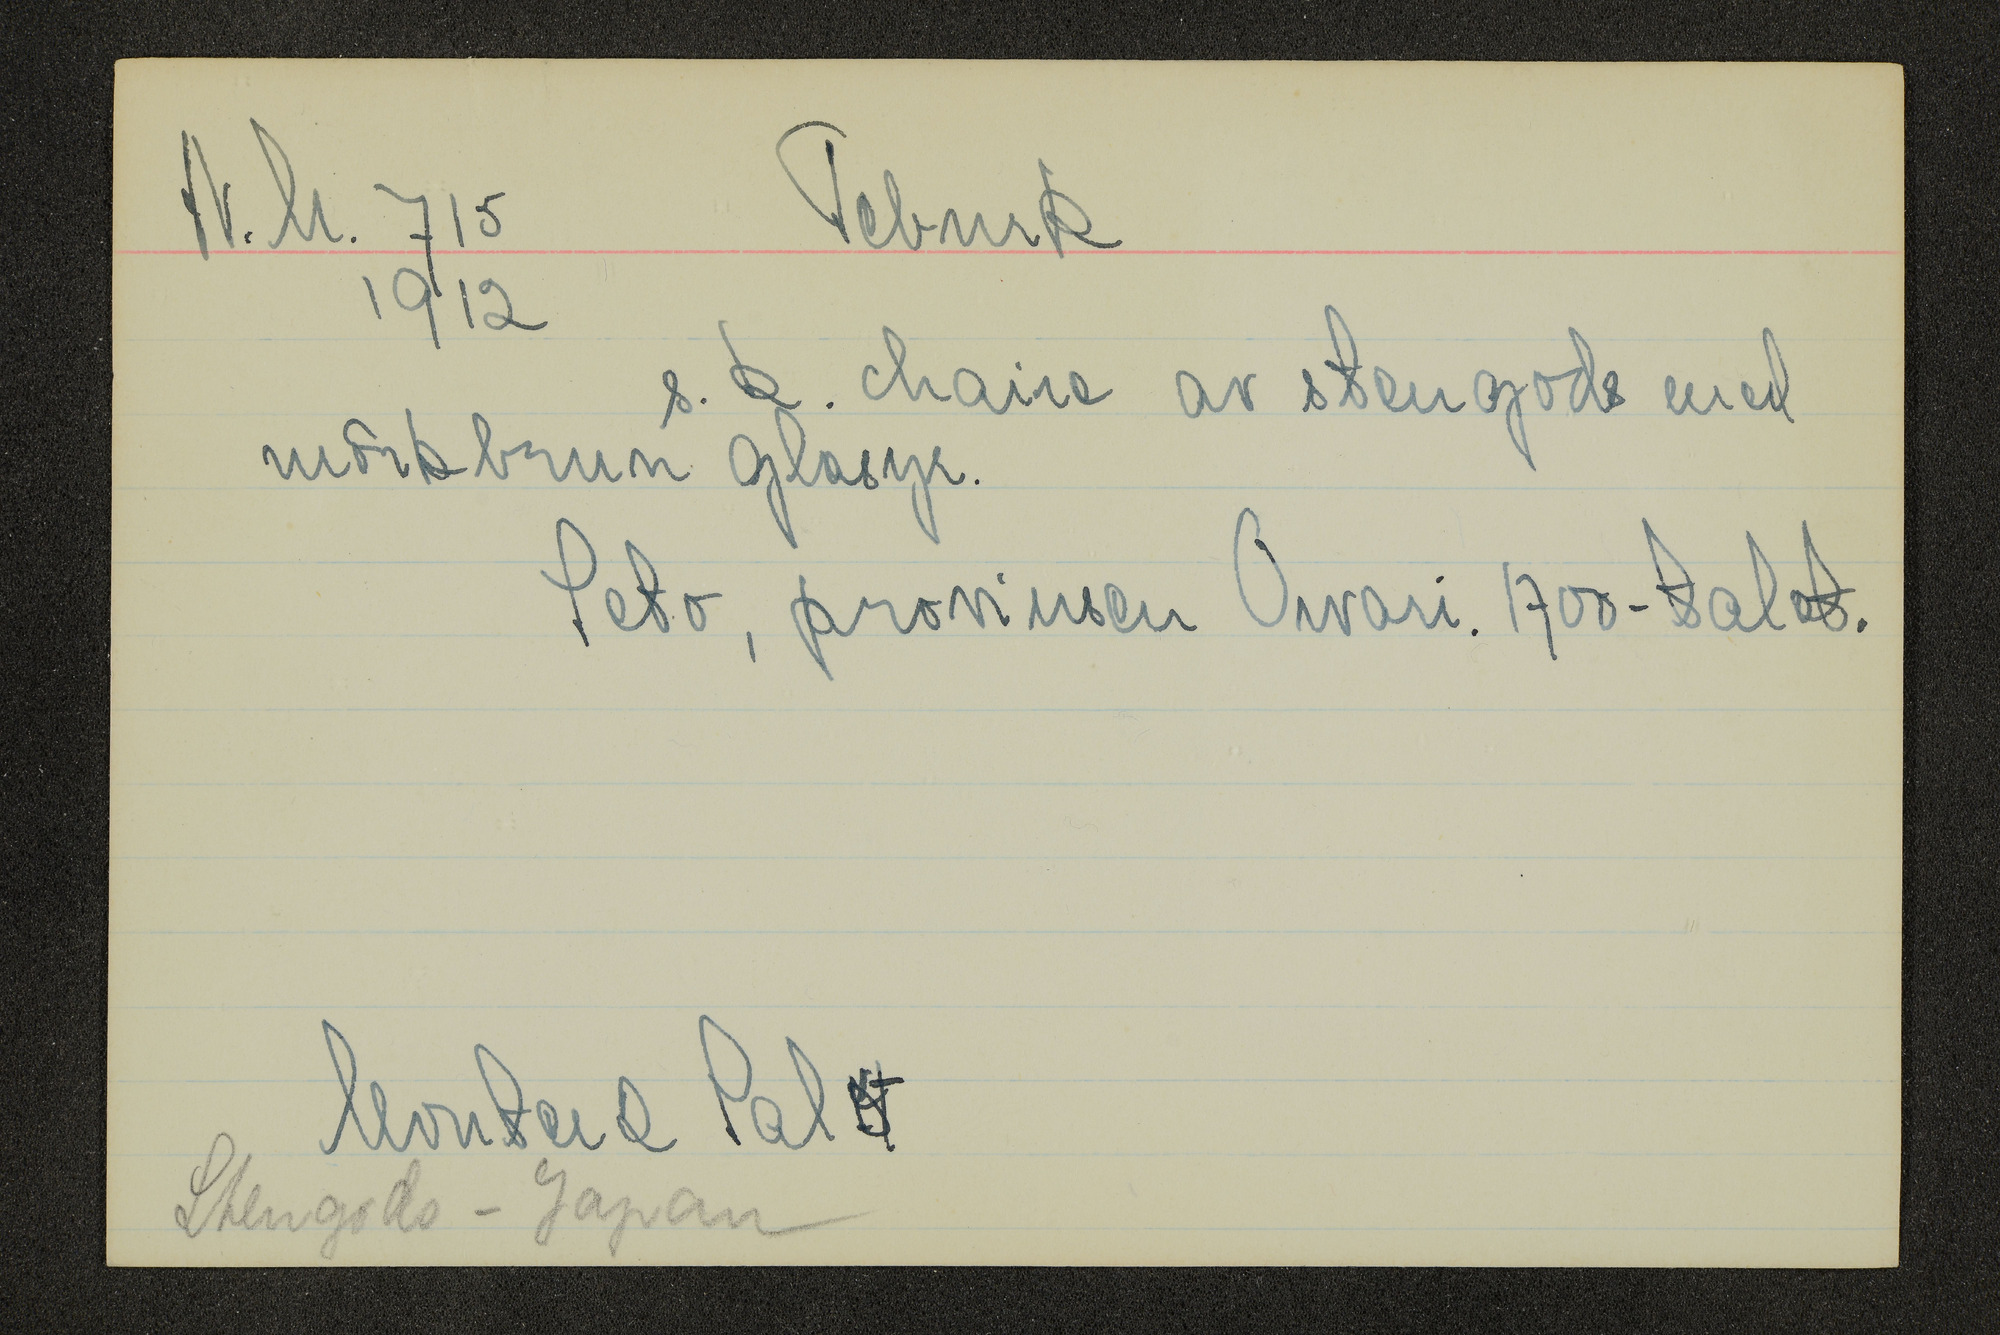 N.M. 715 Teburk
1912
s.k. chaire av stengods med
mörkbrun glasyr.
Seto, provinsen Owari. 1700-talet.
Monter 2 Sal
Stengods - Japan